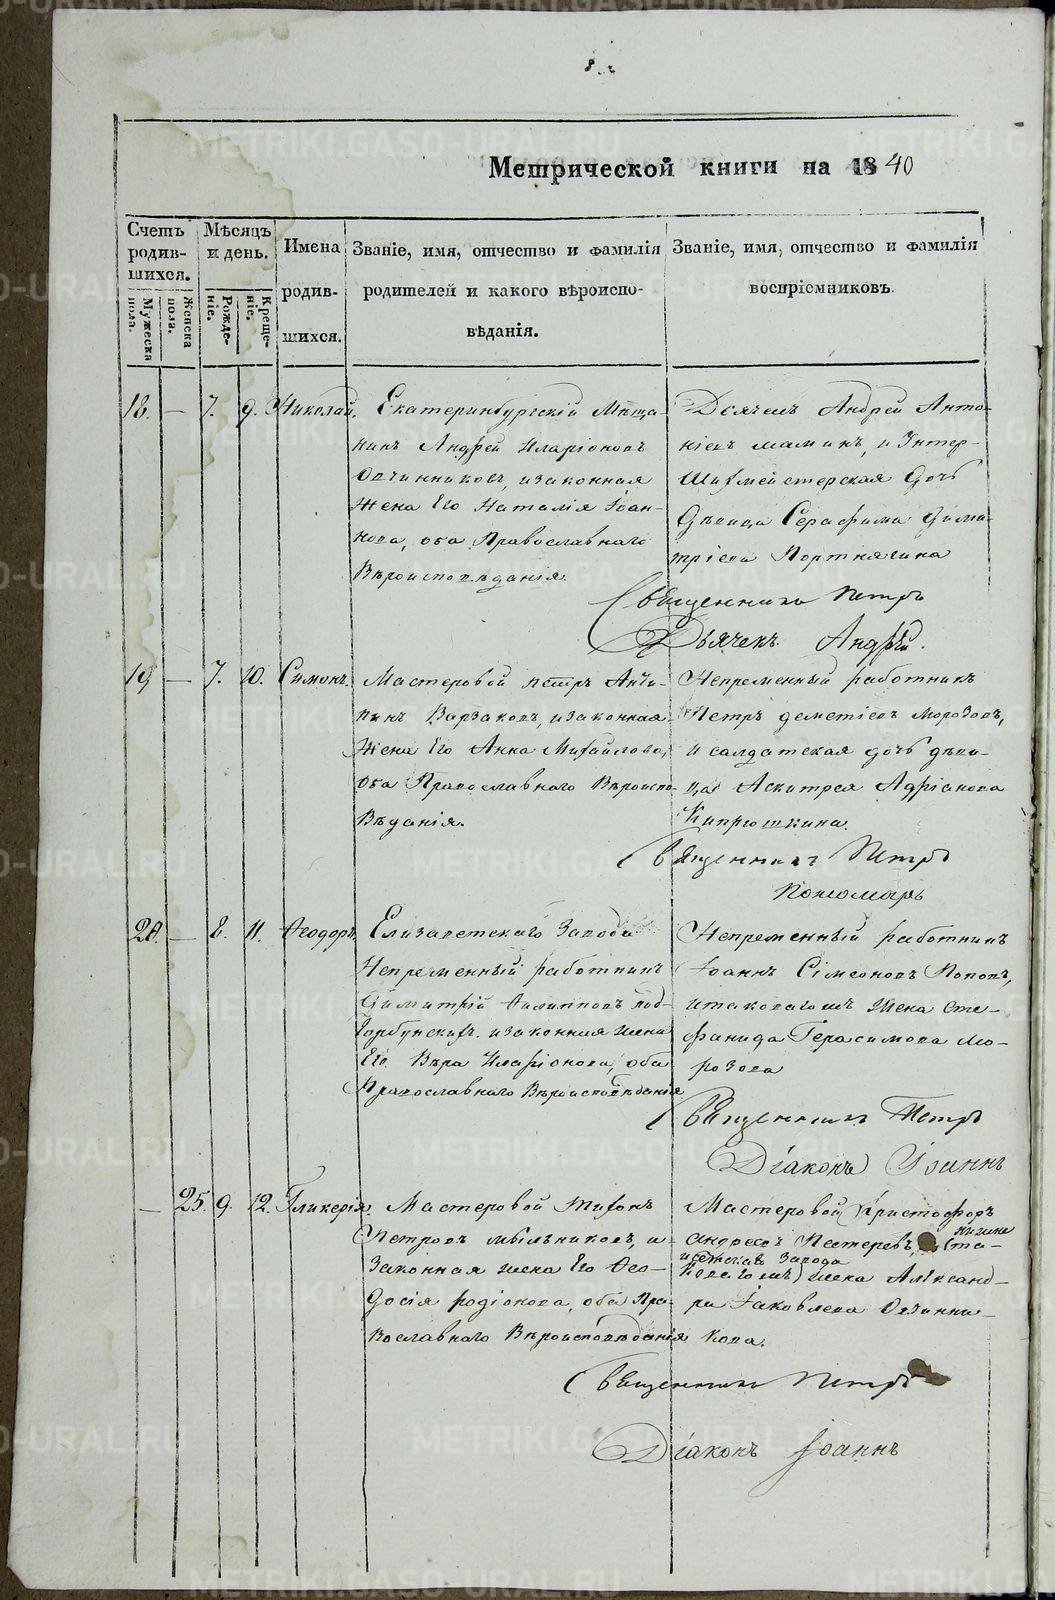 Метрической книги на 1840
Счетъ родив-шихся.
Мужеска пола.
Женска пола.
Мѣсяцъ и день.
Рожде-ніе.
Креще-ніе.
Имена родив-шихся.
Званіе, имя, отчество и фамилія
родителей и какого вѣроиспо-
вѣданія.
Званіе, имя, отчество и фамилія
воспріемниковъ
18. — 7. 9. Николай.
Екатеринбургскій Мѣща-
нинъ Андрей Иларіоновъ
Овчинниковъ, и законная
Жена Его Наталія Іоан-
нова, оба Православнаго
Вѣроисповѣданія.
Дьячекъ Андрей Анто-
ніевъ Маминъ, и Унтер-
Шихмейстерская Дочь
Дѣвица Серафима Дими-
тріева Портнягина
Священникъ Петръ
Дьячекъ Андрей.
19 — 7. 10. Симонъ.
Мастеровой Петръ Анти-
пинъ Варзаковъ, и законная
Жена Его Анна Михайлова,
Оба Православнаго Вѣроиспо-
Вѣданія.
Непременный работникъ
Петръ Деметіевъ Морозовъ,
и салдатская дочь дѣви-
ца Адріанова
Кипрюшкина.
Священникъ Петръ
Пономарь
20. — 8. 11. Феодоръ.
Елисаветскаго Завода
Непременный работникъ
Димитрій Филипповъ Под-
горбунскихъ. и законная жена
Его Вѣра Иларіонова, оба
Православнаго Вѣроисповѣданія
Непременный работникъ
Іоаннъ Сімеоновъ Поповъ,
и таковагожъ жена Сте-
фанида Герасимова Мо-
розова
Священникъ Петръ
Діаконъ Іоаннъ
— 25. 9. 12. Гликерія.
Мастеровой Тихонъ
Петровъ Мыльниковъ, и
Законная жена Его Фео-
досія Родіонова, оба Пра-
вославнаго Вѣроисповѣданія
Мастеровой Христофоръ
Андреевъ Пестеревъ, (та-
Нижне
исетскаго Завода
коваго жъ) жена Александ-
ра Іаковлева Овчинни-
кова.
Священникъ Петръ
Діаконъ Іоаннъ
METRIKI.GASO-URAL.RU